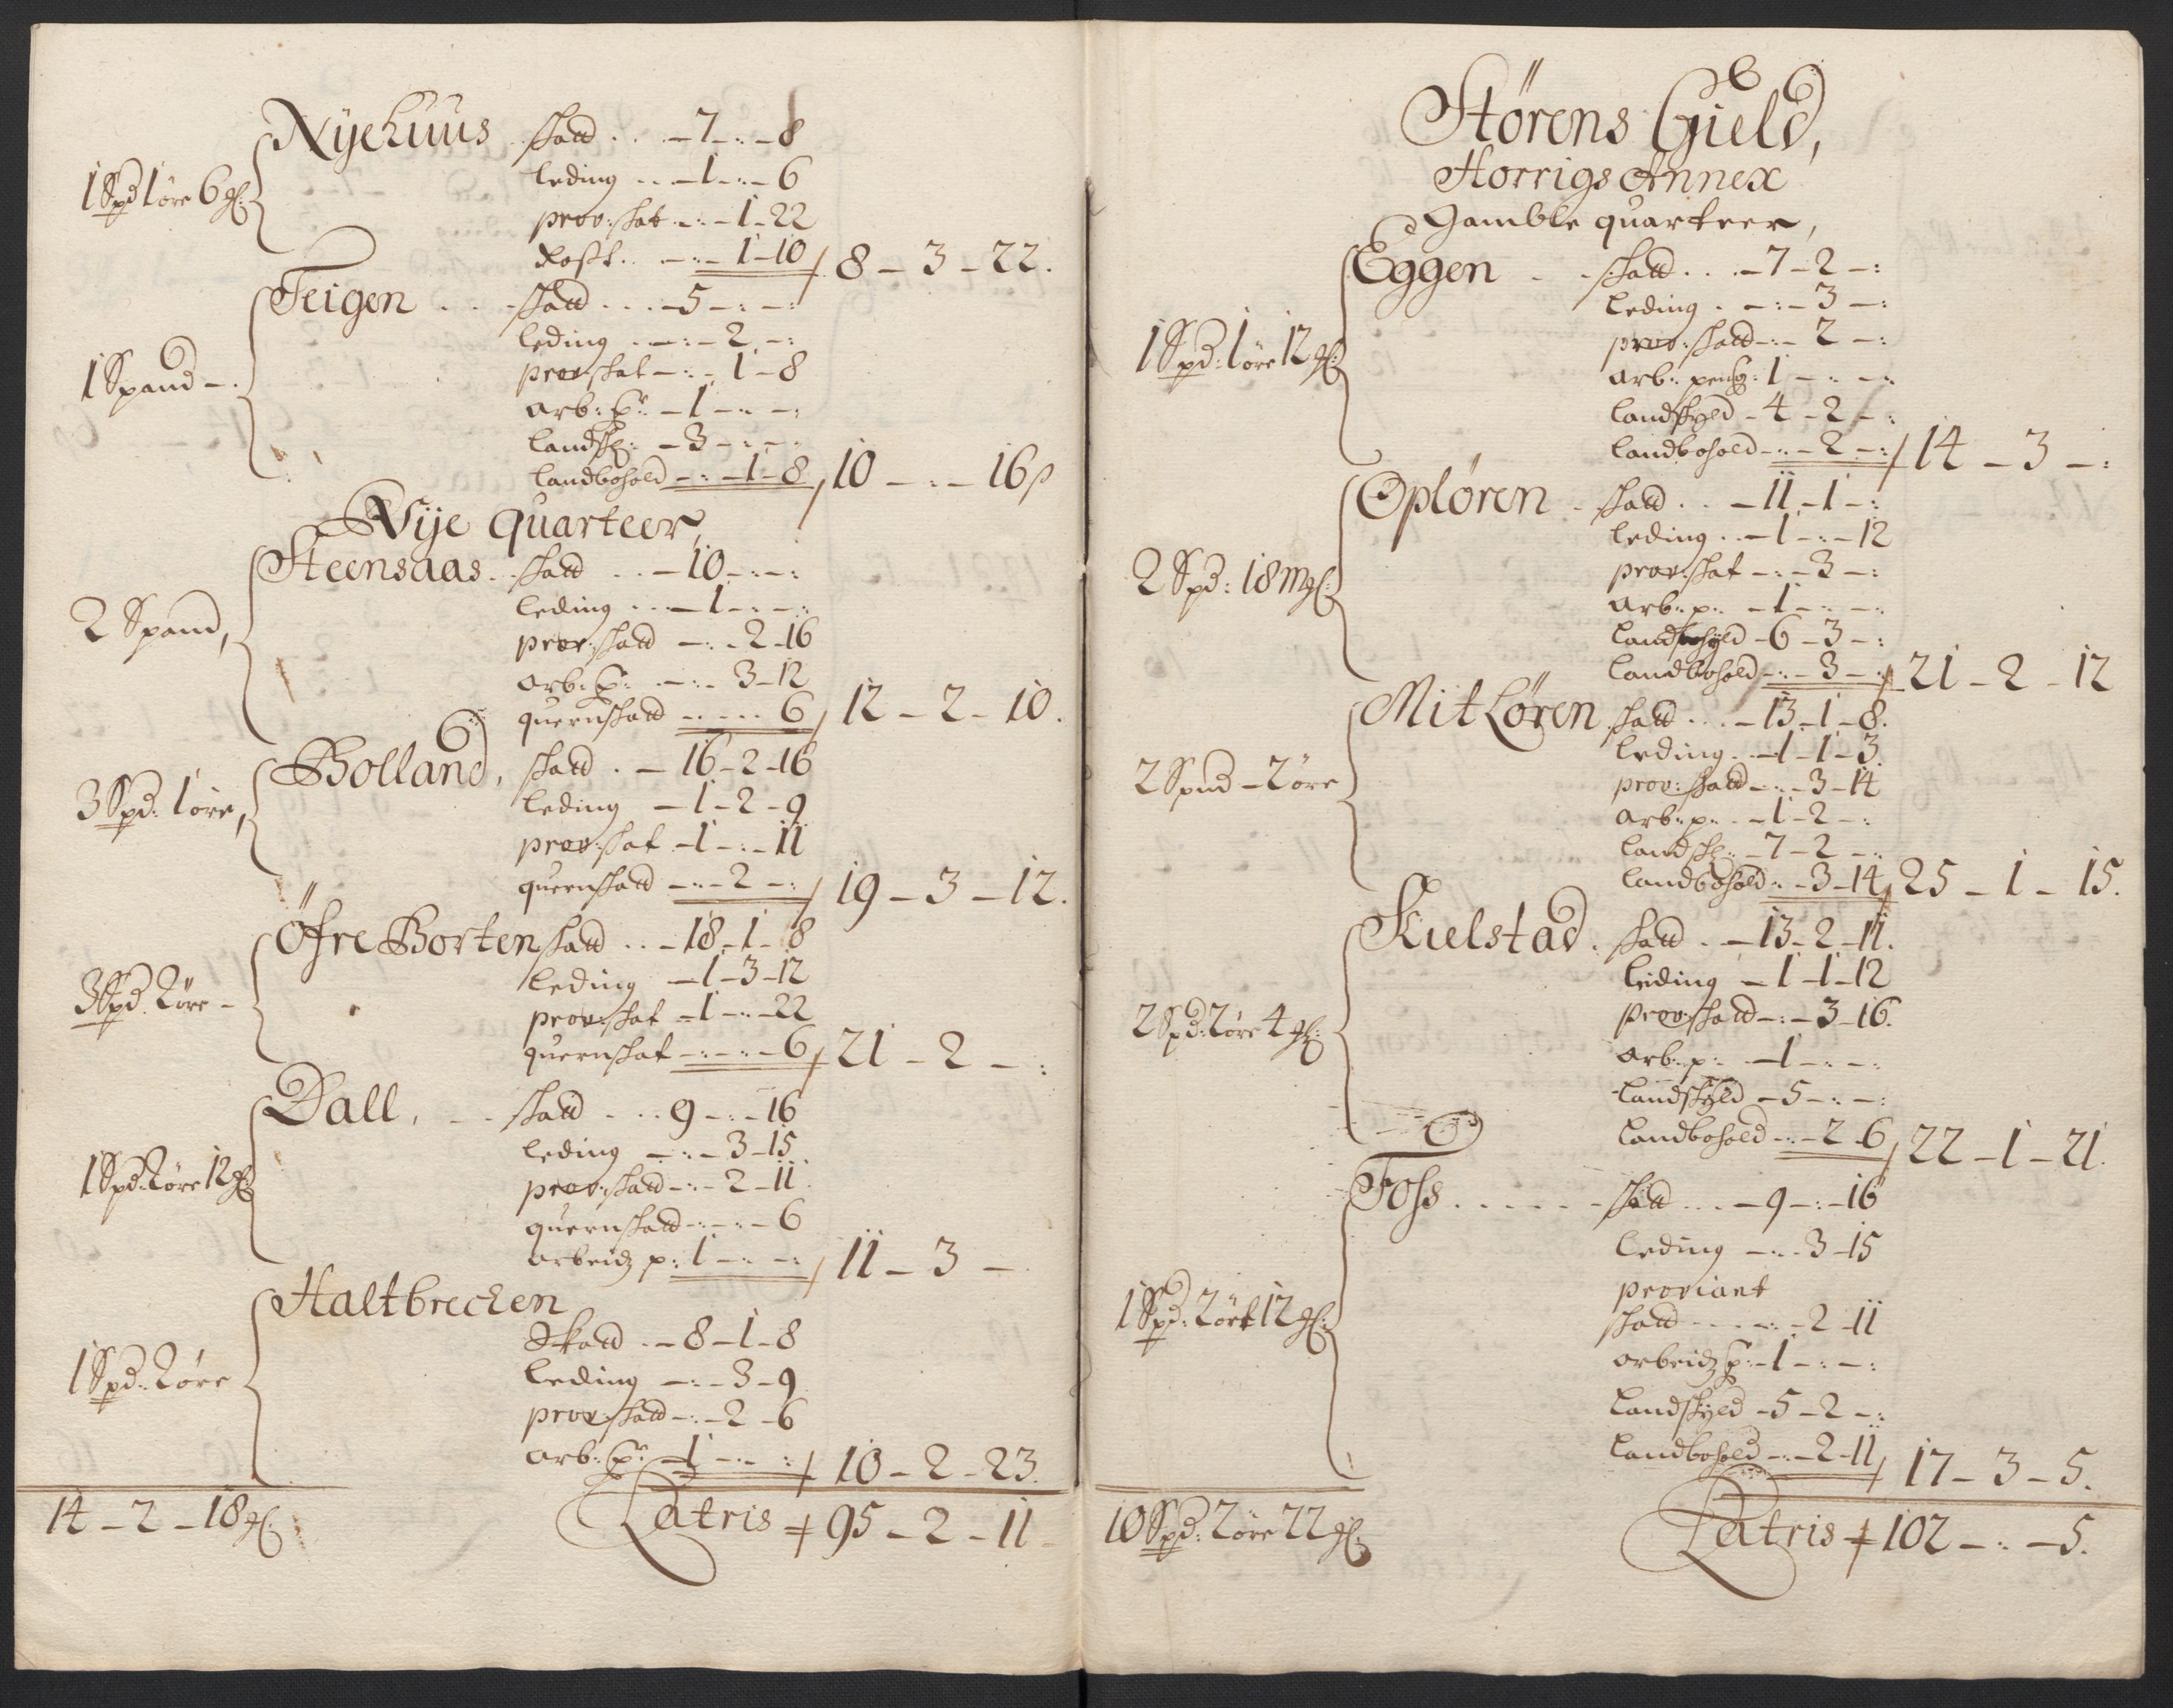 Nyehuus skatt . . . – 7 – : – 8
1 Spd 1 øre 6 ml:
leding . . – 1 – : – 6
prov: skat – : – 1 – 22
Rost . . – : – 1 – 10 / 8 – 3 – 22.
Teigen . . . skatt . . . – 5 – : – :
leding . . – : – 2 – :
prov skat – : – 1 – 8
1 Spand – .
arb: p: – 1 – : – :
landsk: – 3 – : – :
landbohold – : – 1 – 8 / 10 – : – 16 ß
Nÿe quarteer,
Steensaas . . skatt . . – 10 – : – :
leding . . . – 1 – : – :
2 Spand,
prov: skatt – : – 2 – 16
arb: p: – : – 3 – 12
quernskatt – : – . . 6 / 12 – 2 – 10.
Bolland, skatt . – 16 – 2 – 16
3 Spd: 1 øre,
leding – 1 – 2 – 9
prov: skat – 1 – : – 11
quernskatt – : – 2 – : / 19 – 3 – 12.
Öfre Borten skatt . . – 18 – 1 – 8
leding – 1 – 3 – 12
3 Spd. 2 øre –
prov: skat – 1 – : – 22
quernskat – : – : – 6 / 21 – 2 – :
Dall, . – . . skatt . . . 9 – : – 16
leding – : – 3 – 15
1 Spd: 2 øre 12 ml
prov: skatt – : – 2 – 11
quernskatt – : – : – 6
arbeidz p: 1 – : – : / 11 – 3 – .
Haltbrecken
Skatt . – 8 – 1 – 8
1 Spd: 2 øre
leding – : – 3 – 9
prov: skatt – : – 2 – 6
arb: p: – 1 – : – : / 10 – 2 – 23.
14 – 2 – 18 ml:
Latris / 95 – 2 – 11 –
Störens Gield,
Horrigs Annex
Gamble quarteer,
Eggen . . skatt . . . – 7 – 2 – :
leding . – : – 3 – :
1 Spd: 1 øre 12 ml:
prov: skatt – : – 2 – :
arb: peng: 1 – : – :
landskyld – 4 – 2 – :
landbohold – : – 2 – : / 14 – 3 – :
Oplören . skatt . . – 11 – 1 – :
leding . . – 1 – : – 12
2 Spd: 18 ml:
prov: skat – : – 3 – :
arb: p: – 1 – : – :
landskyld – 6 – 3 – :
landbohold – : – 3 – : / 21 – 2 – 12
Mit Lören skatt . . . – 13 – 1 – 8.
leding . – 1 – 1 – 3.
2 Spnd – 2 öre
prov: skatt – : – 3 – 14
arb: p: . – 1 – 2 – :
landsk: – 7 – 2 – :
landbohold: – 3 – 14 / 25 – 1 – 15.
Kielstad . skatt . – 13 – 2 – 11.
leiding – 1 – 1 – 12
2 Spd: 2 øre 4 ml:
prov: skatt – : – 3 – 16.
arb: p: – 1 – : – :
landskyld – 5 – : – :
landbohold – : – 2 – 6 / 22 – 1 – 21.
Foss . . . . . – skatt . . . – 9 – : – 16
leding – : – 3 – 15
proviant
1 Spd: 2 öre 12 ml:
skatt – . . – : – 2 – 11
arbeidz p: – 1 – : – :
landskyld – 5 – 2 – :
landbohold – : – 2 – 11 / 17 – 3 – 5.
10 Spd: 2 øre 22 ml:
Latris / 102 – : – 5.